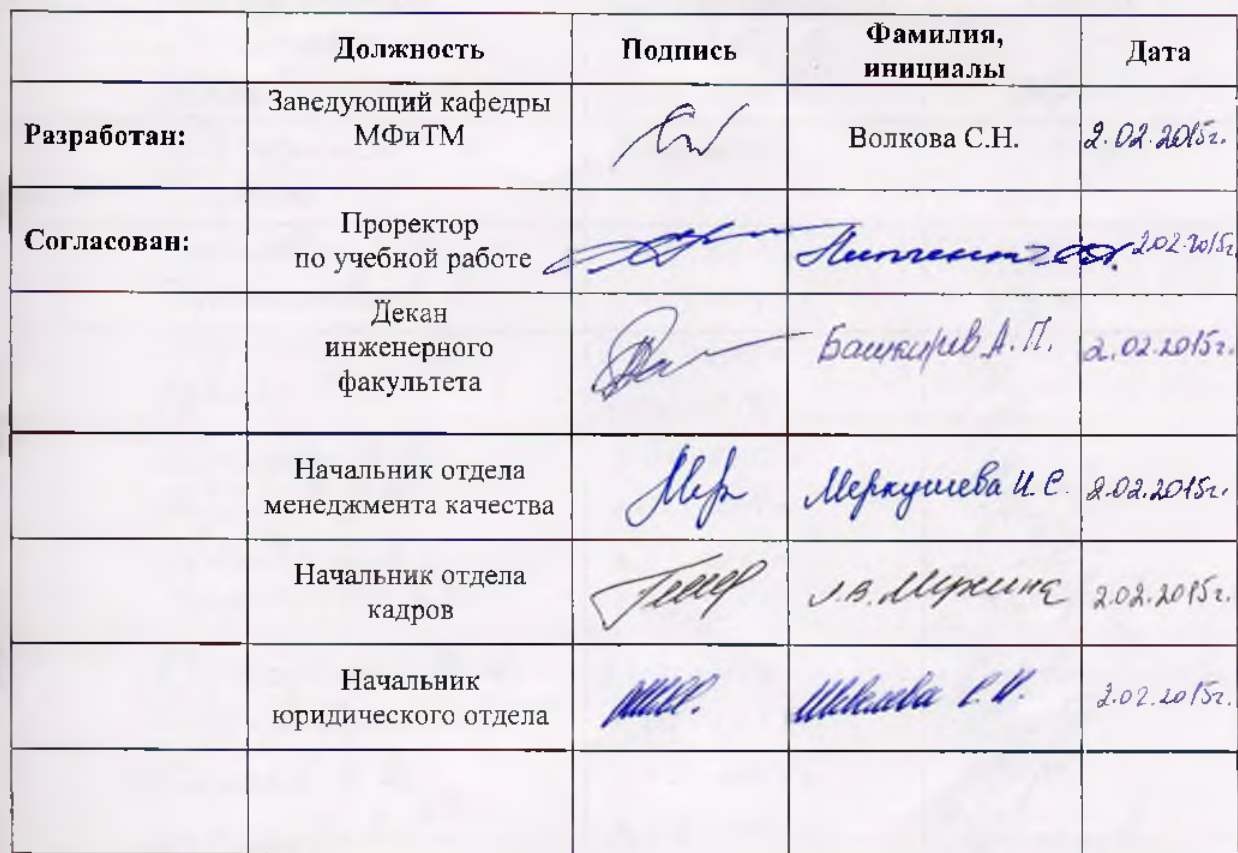 Должность Подпись Фамилия, инициалы Дата
Разработан: Заведующий кафедры МФиТМ Волкова С.Н. 2.02.2015г.
Согласован: Проректор по учебной работе 2.02.2015г.
Декан инженерного факультета Башкирев А.П. 2.02.2015г.
Начальник отдела менеджмента качества Меркушева И.С. 2.02.2015г.
Начальник отдела кадров 2.02.2015г.
Начальник юридического отдела 2.02.2015г.